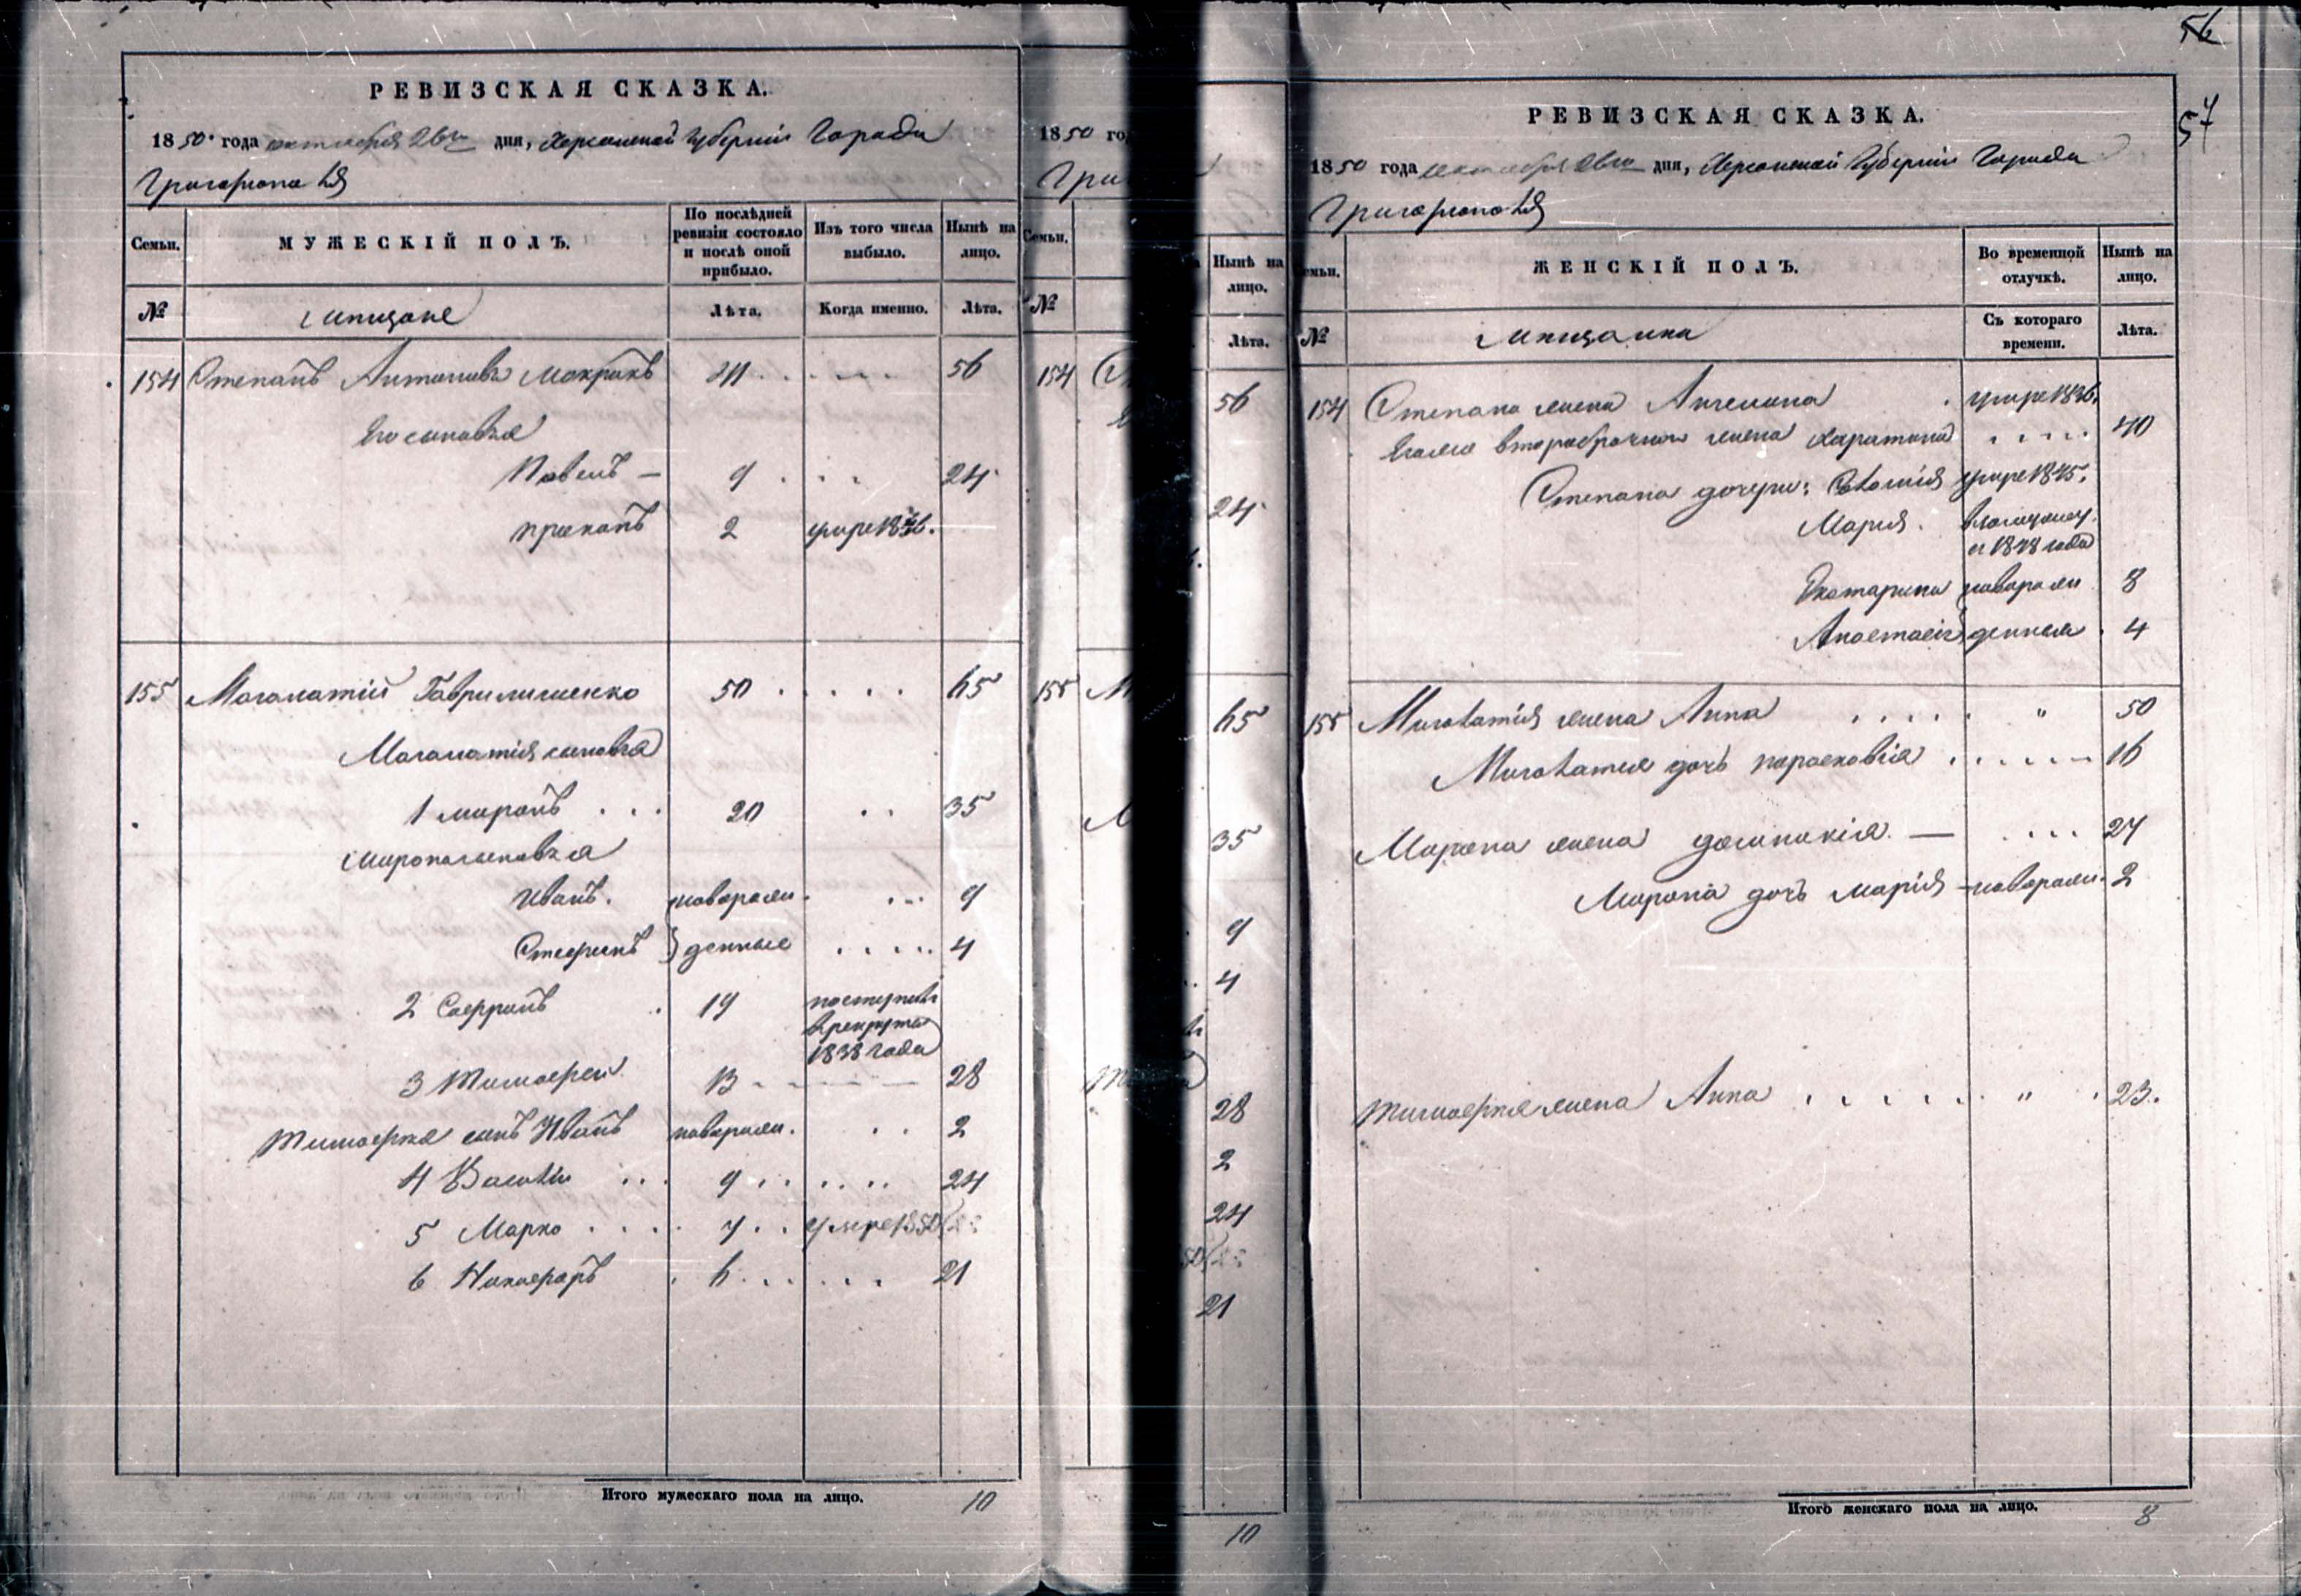 РЕВИЗСКАЯ СКАЗКА.
1850 года октября 26го дня, Херсонской Губернии Города
Григориополя
Семьи. МУЖЕСКІЙ ПОЛЪ. По послѣдней ревизіи состояло и послѣ оной прибыло. Изъ того числа выбыло. Нынѣ на лицо.
№ мещане Лѣта. Когда именно. Лѣта.
154 Степанъ Антоновъ Мокракъ 41 56
Его сыновья
Павелъ — 9 24
Прокопъ 2 умре 1836.
155 Маголатій Гаврилишенко 50 65
Маголатія сыновья
1 Миронъ 20 35
Мирона сыновья
Иванъ. новорож- 9
Стефанъ } денные 4
2 Сафронъ 19 поступилъ
в рекруты
1838 года
3 Тимофей 13 28
Тимофея сынъ Иванъ новорож. 2
4 Василій 9 24
5 Марко 7 умре 1850
6 Никифоръ 6 21
Итого мужескаго пола на лицо. 10
1850 го
Гри
Семьи.
№
154
155
Нынѣ на лицо.
Лѣта.
56
24
65
35
9
4
28
2
24
21
10
56
57
РЕВИЗСКАЯ СКАЗКА.
1850 года октября 26го дня, Херсонской Губернии Города
Григориополя
емьи. ЖЕНСКІЙ ПОЛЪ. Во временной отлучкѣ. Нынѣ на лицо.
№ мещанки Съ котораго времени. Лѣта.
154 Степана жена Ангелина умре 1836.
Его же второбрачная жена Харатина 40
Степана дочери: Соломія умре 1845.
Марія. в замужеу.
съ 1848 года
Екатарина новорож 8
Анастасія денныя 4
155 Маголатія жена Анна " 50
Маголатия дочь Парасковія 16
Мирона жена Доминикія — 27
Мирона дочь Марія - новорож. 2
Тимофея жена Анна " 23.
Итого женскаго пола на лицо. 8